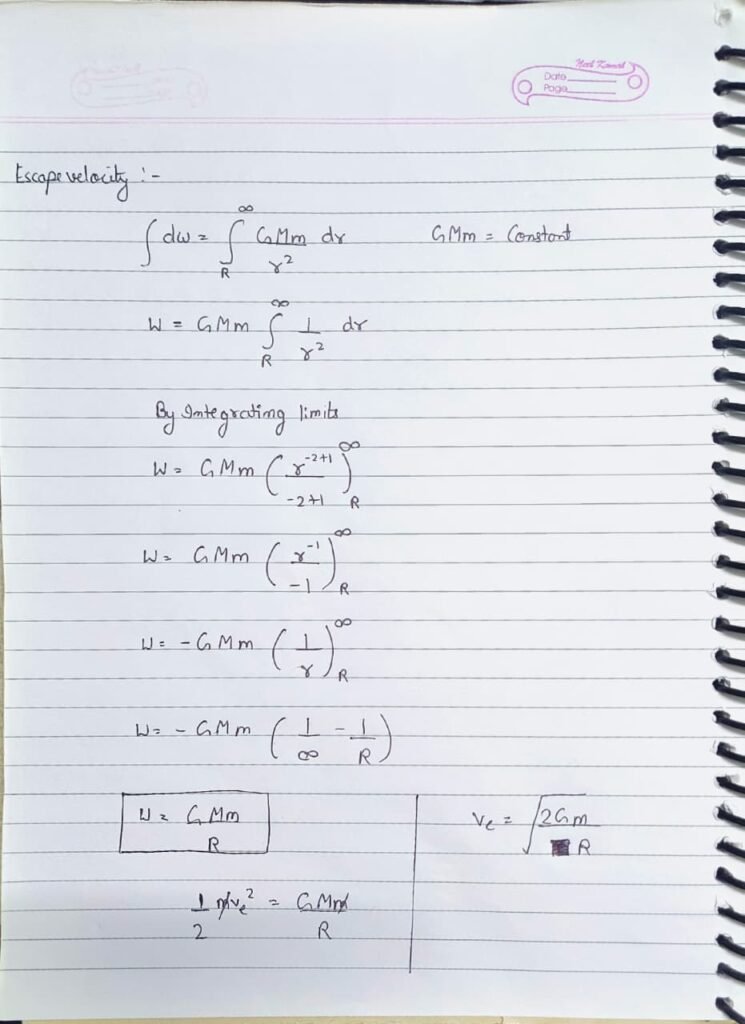 Neel Kamal
Date
Page
Escape velocity :-
∫ dw = ∫_R^∞ GMm/r² dr    GMm = Constant
W = GMm ∫_R^∞ 1/r² dr
By Integrating limits
W = GMm (r^(-2+1)/(-2+1))_R^∞
W = GMm (r^(-1)/(-1))_R^∞
W = - GMm (1/r)_R^∞
W = - GMm (1/∞ - 1/R)
W = GMm/R
1/2 mv_e² = GMm/R
v_e = √(2Gm/R)